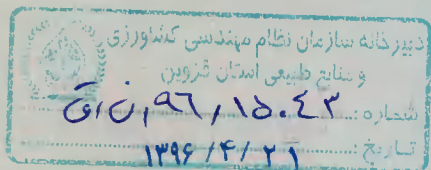 دبیرخانه سازمان نظام مهندسی کشاورزی
و منابع طبیعی استان قزوین
شماره: ۹۶،۱۵۰۴۳،ن،ق
تاریخ: ۱۳۹۶/۴/۲۱